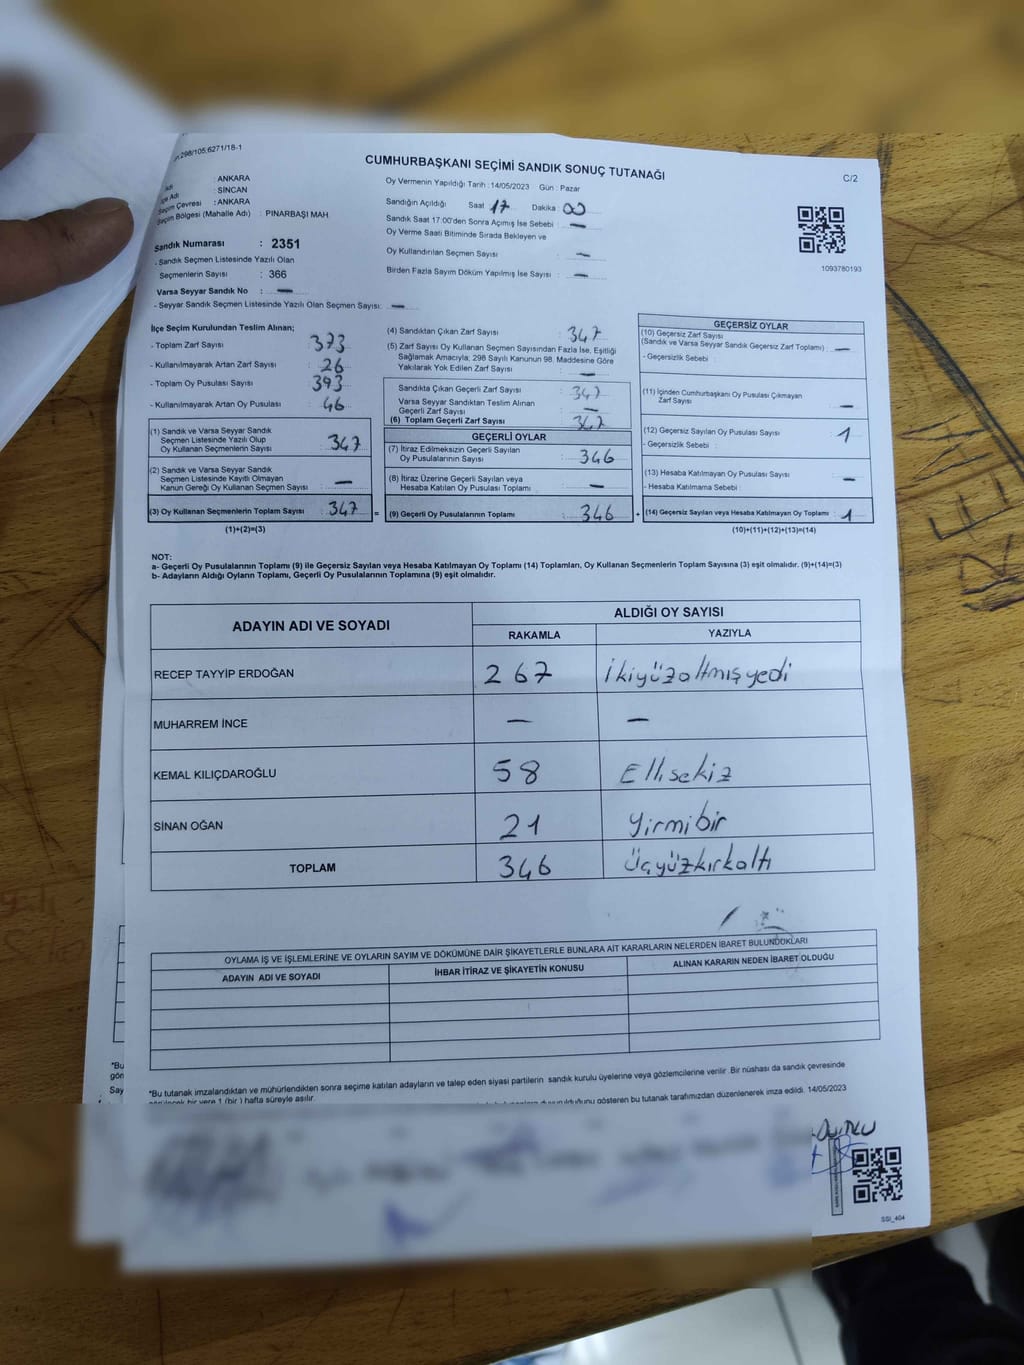 298/105.6271/18-1
CUMHURBAŞKANI SEÇİMİ SANDIK SONUÇ TUTANAĞI
C/2
Adı : ANKARA
İlçe Adı : SİNCAN
Seçim Çevresi : ANKARA
Seçim Bölgesi (Mahalle Adı) : PINARBAŞI MAH
Sandık Numarası : 2351
- Sandık Seçmen Listesinde Yazılı Olan
Seçmenlerin Sayısı : 366
Varsa Seyyar Sandık No : —
- Seyyar Sandık Seçmen Listesinde Yazılı Olan Seçmen Sayısı: —
Oy Vermenin Yapıldığı Tarih : 14/05/2023 Gün : Pazar
Sandığın Açıldığı Saat 17 Dakika : 00
Sandık Saat 17:00'den Sonra Açımış İse Sebebi : —
Oy Verme Saati Bitiminde Sırada Bekleyen ve
Oy Kullandırılan Seçmen Sayısı : —
Birden Fazla Sayım Döküm Yapılmış İse Sayısı : —
1093780193
İlçe Seçim Kurulundan Teslim Alınan;
- Toplam Zarf Sayısı : 373
- Kullanılmayarak Artan Zarf Sayısı : 26
- Toplam Oy Pusulası Sayısı : 393
- Kullanılmayarak Artan Oy Pusulası : 46
(1) Sandık ve Varsa Seyyar Sandık
Seçmen Listesinde Yazılı Olup
Oy Kullanan Seçmenlerin Sayısı : 347
(2) Sandık ve Varsa Seyyar Sandık
Seçmen Listesinde Kayıtlı Olmayan
Kanun Gereği Oy Kullanan Seçmen Sayısı : —
(3) Oy Kullanan Seçmenlerin Toplam Sayısı : 347 =
(1)+(2)=(3)
(4) Sandıktan Çıkan Zarf Sayısı : 347
(5) Zarf Sayısı Oy Kullanan Seçmen Sayısından Fazla İse, Eşitliği
Sağlamak Amacıyla; 298 Sayılı Kanunun 98. Maddesine Göre
Yakılarak Yok Edilen Zarf Sayısı : —
Sandıkta Çıkan Geçerli Zarf Sayısı : 347
Varsa Seyyar Sandıktan Teslim Alınan
Geçerli Zarf Sayısı : —
(6) Toplam Geçerli Zarf Sayısı : 347
GEÇERLİ OYLAR
(7) İtiraz Edilmeksizin Geçerli Sayılan
Oy Pusulalarının Sayısı : 346
(8) İtiraz Üzerine Geçerli Sayılan veya
Hesaba Katılan Oy Pusulası Toplamı : —
(9) Geçerli Oy Pusulalarının Toplamı : 346 +
GEÇERSİZ OYLAR
(10) Geçersiz Zarf Sayısı
(Sandık ve Varsa Seyyar Sandık Geçersiz Zarf Toplamı) : —
- Geçersizlik Sebebi :
(11) İçinden Cumhurbaşkanı Oy Pusulası Çıkmayan
Zarf Sayısı : —
(12) Geçersiz Sayılan Oy Pusulası Sayısı : 1
- Geçersizlik Sebebi :
(13) Hesaba Katılmayan Oy Pusulası Sayısı : —
- Hesaba Katılmama Sebebi :
(14) Geçersiz Sayılan veya Hesaba Katılmayan Oy Toplamı : 1
(10)+(11)+(12)+(13)=(14)
NOT:
a- Geçerli Oy Pusulalarının Toplamı (9) ile Geçersiz Sayılan veya Hesaba Katılmayan Oy Toplamı (14) Toplamları, Oy Kullanan Seçmenlerin Toplam Sayısına (3) eşit olmalıdır. (9)+(14)=(3)
b- Adayların Aldığı Oyların Toplamı, Geçerli Oy Pusulalarının Toplamına (9) eşit olmalıdır.
ADAYIN ADI VE SOYADI
ALDIĞI OY SAYISI
RAKAMLA YAZIYLA
RECEP TAYYİP ERDOĞAN 267 İkiyüzaltmışyedi
MUHARREM İNCE — —
KEMAL KILIÇDAROĞLU 58 Ellisekiz
SİNAN OĞAN 21 Yirmibir
TOPLAM 346 Üçyüzkırkaltı
OYLAMA İŞ VE İŞLEMLERİNE VE OYLARIN SAYIM VE DÖKÜMÜNE DAİR ŞİKAYETLERLE BUNLARA AİT KARARLARIN NELERDEN İBARET BULUNDUKLARI
ADAYIN ADI VE SOYADI İHBAR İTİRAZ VE ŞİKAYETİN KONUSU ALINAN KARARIN NEDEN İBARET OLDUĞU
*Bu tutanak imzalandıktan ve mühürlendikten sonra seçime katılan adayların ve talep eden siyasi partilerin sandık kurulu üyelerine veya gözlemcilerine verilir .Bir nüshası da sandık çevresinde
görülecek bir yere 1 (bir ) hafta süreyle asılır.
duyurulduğunu gösteren bu tutanak tarafımızdan düzenlenerek imza edildi. 14/05/2023
*Bu
gör
Say
SSI_404